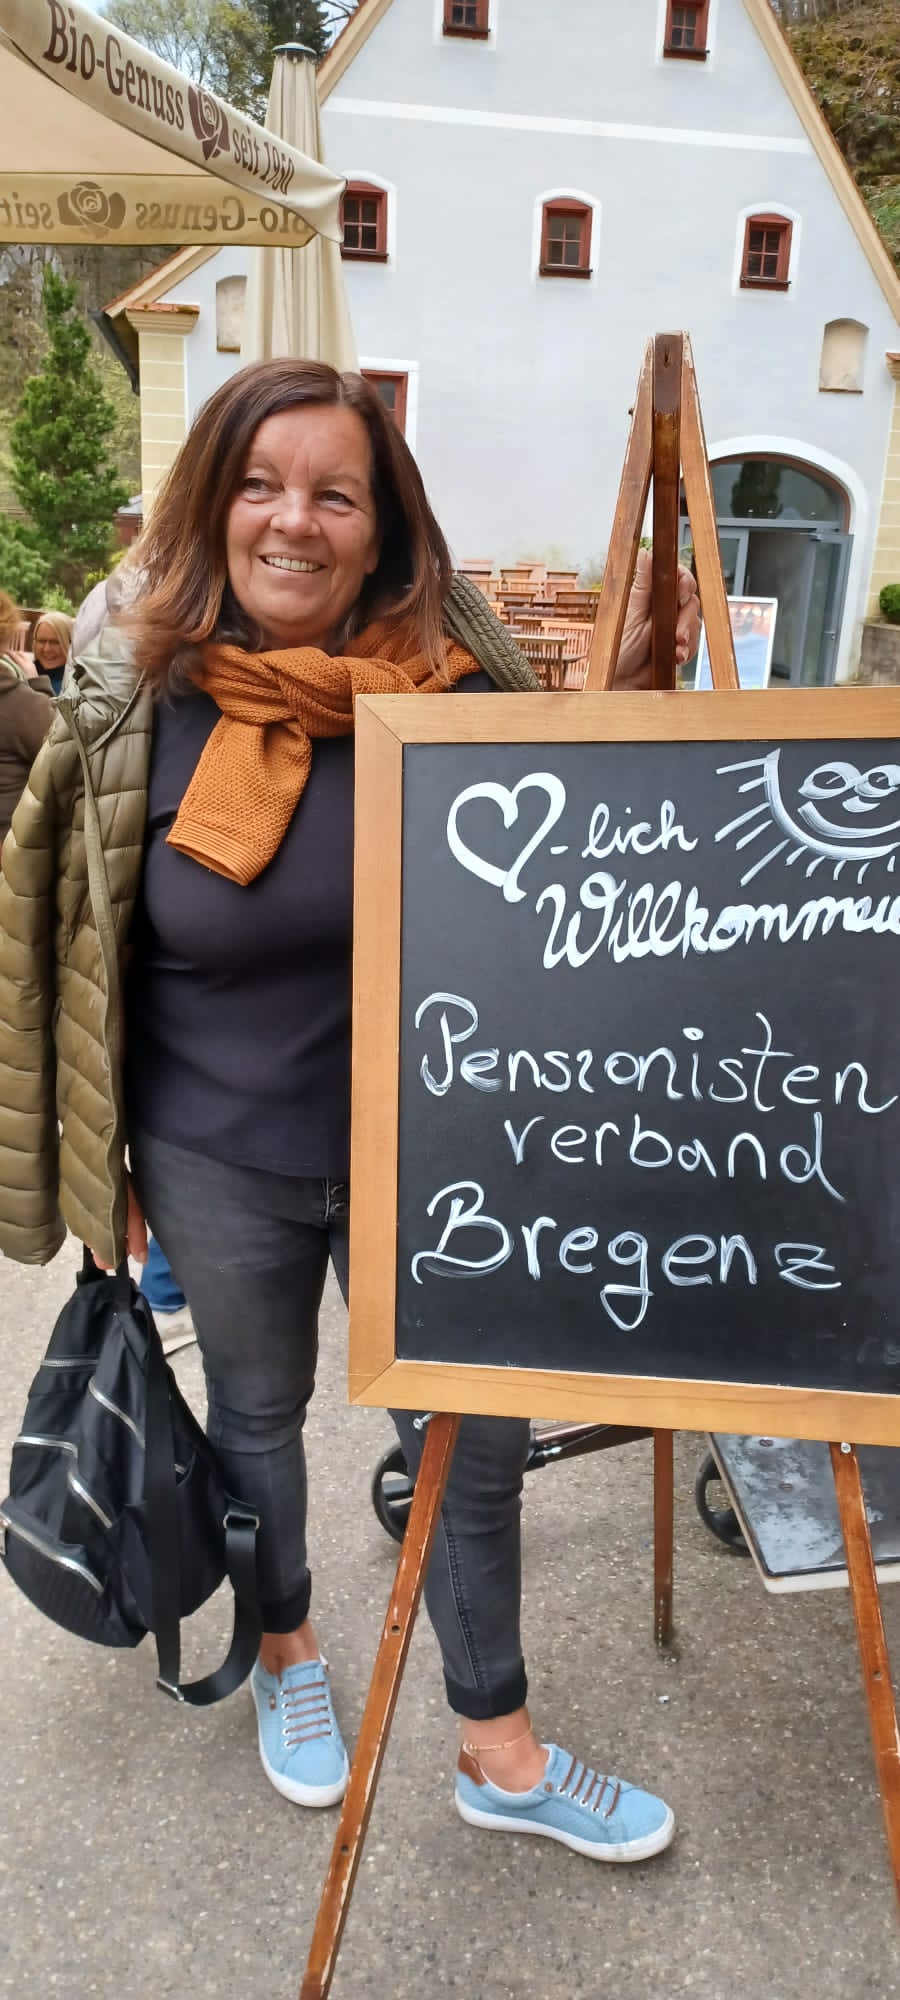 Bio-Genuss seit 1950
Bio-Genuss seit
-lich
Willkommen
Pensionisten
verband
Bregenz